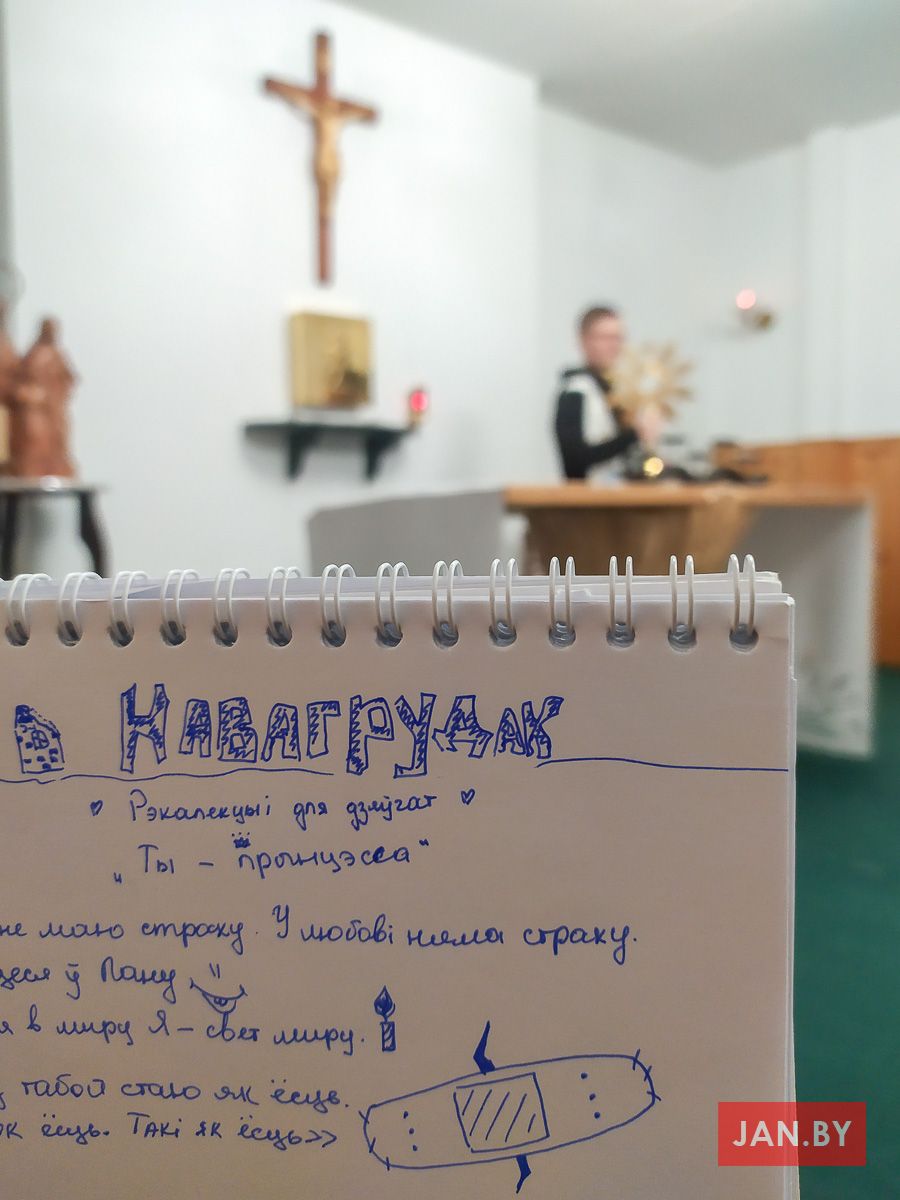 НАВАГРУДАК
Рэкалекцыі для дзяўчат
„Ты – прынцэсса"
не маю страху. У любові няма страху.
цеся ў Пану
я в миру Я – свет миру.
табой стаю як ёсць.
як ёсць. Такі як ёсць>>
JAN.BY